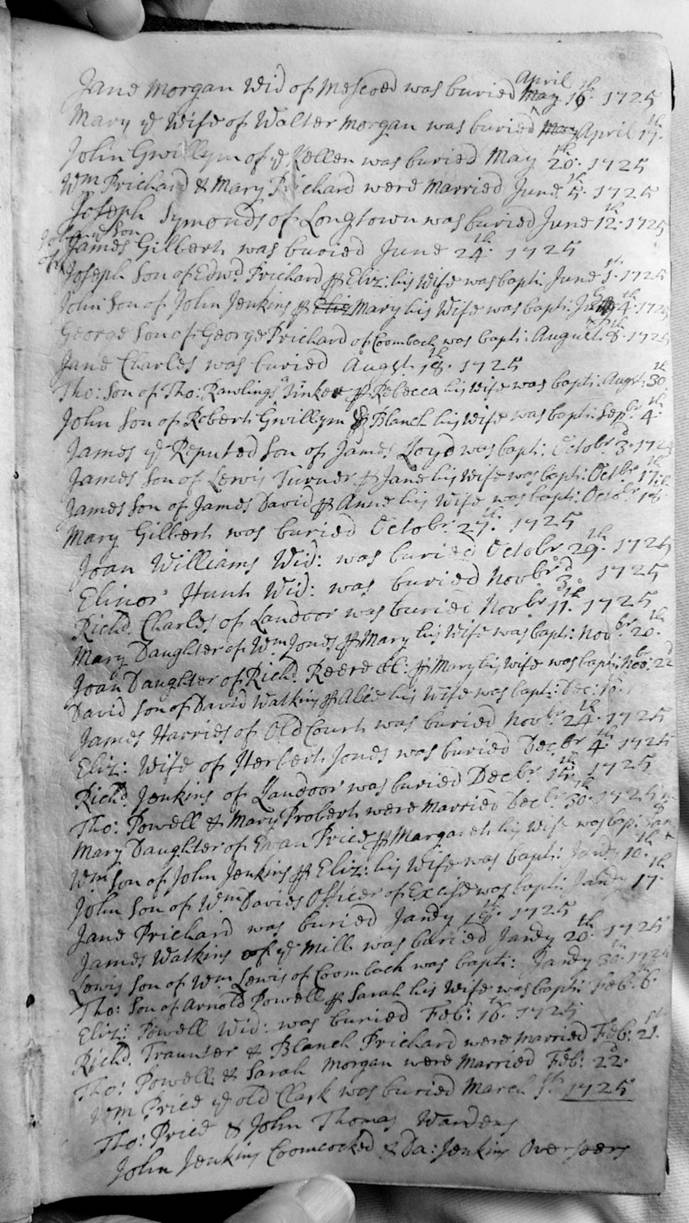 Jane Morgan Wid of Mescoed was buried April May 16th. 1725
Mary ye Wife of Walter Morgan was buried May April 17.
John Gwillym of ye Kellen was buried May 20th. 1725
Wm Prichard & Mary Prichard were Married June 5. 1725
Joseph Symonds of Longtown was buried June 12th. 1725
James Gilberth was buried June 24th. 1725
Joseph Son of Edwd Prichard & Eliz: his Wife was bapti: June 1st. 1725
John Son of John Jenkins & Eliz Mary his Wife was bapti: 4th. 1725
George Son of George Prichard of Coombach was bapti: August 8th. 1725
Jane Charles was buried Augst 18th. 1725
Tho: Son of Tho: Rawlings Tinker & Rebecca his Wife was bapti: Augst. 30th
John Son of Robert Gwillym & Blanch his Wife was bapti: Sepbr 4th.
James ye Reputed Son of James Loyd was bapt: Octobr 3d. 1725
James Son of Lewis Turner & Jane his Wife was bapti: Octbr. 17th.
James Son of James David & Anne his Wife was bapti: Octobr
Mary Gilberth was buried Octobr 27th. 1725
Joan Williams Wid: was buried Octobr 29th. 1725
Elinor Hunt Wid: was buried Novbr 3d. 1725
Richd. Charles of Landoor was buried Novbr 11th. 1725
Mary Daughter of Wm Jones & Mary his Wife was bapti: Novbr. 20th.
Joan Daughter of Rich. & Mary his Wife was bapti: Nov: 22
David Son of David Watkins & Alice his Wife was bapti: Dec:
James Harries of Old Court was buried Novbr 24th. 1725
Eliz: Wife of Herberth Jones was buried Decbr 4th. 1725
Richd Jenkins of Landoor was buried Decbr 1725
Tho: Powell & Mary Proberth were Married Decbr 30th. 1725
Mary Daughter of Evan Price & Margareth his Wife was bapti:
Wm Son of John Jenkins & Eliz: his Wife was bapti: Jandy 10th.
John Son of Wm Davies Officer of Excise was bapti: Jandy 17th.
Jane Prichard was buried Jandy 19th. 1725
James Watkins of ye Mill was buried Jandy 20th. 1725
Lewis Son of Wm Lewis of Coombach was bapti: Jandy 30th. 1725
Tho: Son of Arnold Powell & Sarah his Wife was bapti: Feb: 6.
Eliz: Powell Wid: was buried Feb: 16th. 1725
Richd. Traunter & Blanch Prichard were Married Feb: 21st.
Tho: Powell & Sarah Morgan were Married Feb: 22.
Wm Price ye old Clark was buried March 1725
Tho: Price & John Thomas Wardens
John Jenkins Coomcocked & Da: Jenkins Overseers